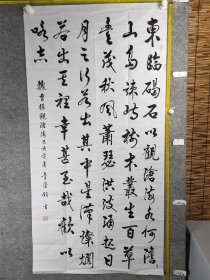 東臨碣石以觀滄海水何澹
山島竦峙樹木叢生百草
豊茂秋風蕭瑟洪波涌起日
月之行若出其中星漢燦爛
若出幸甚至哉歌以
咏志
魏曹操觀滄海